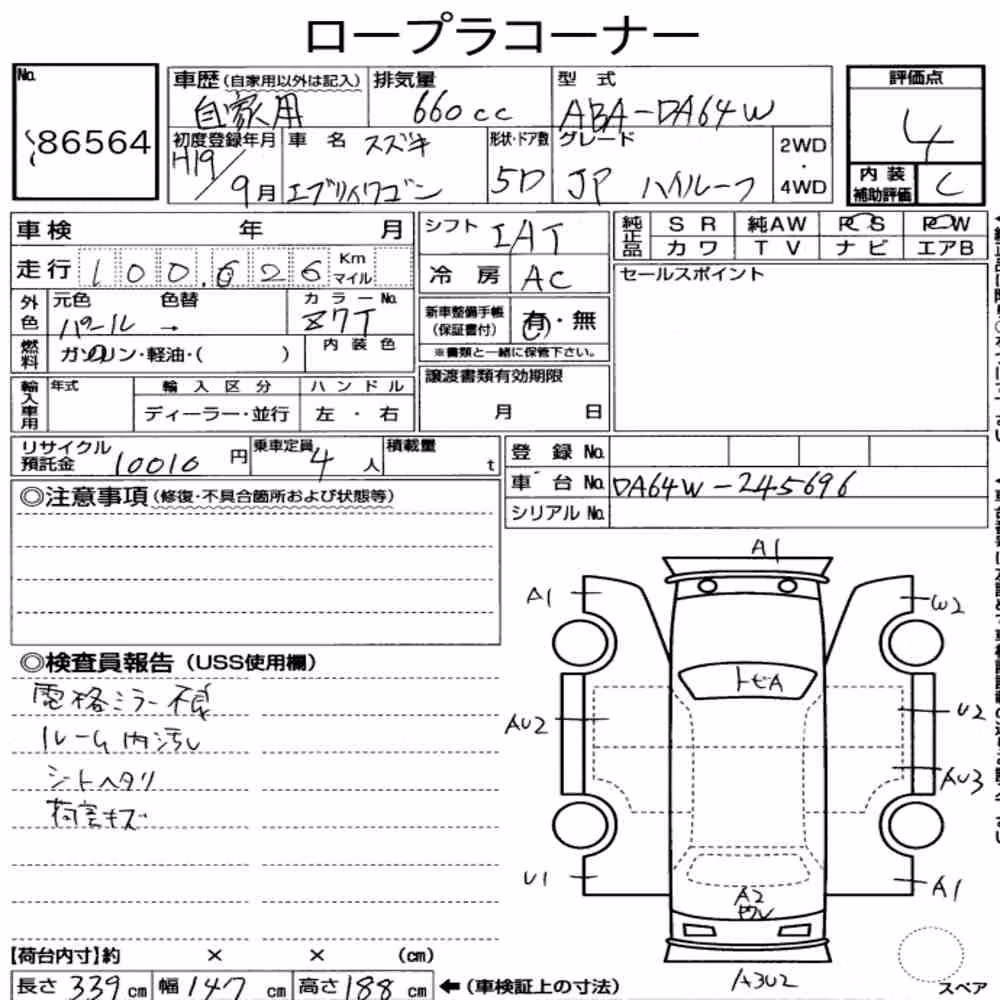 ロープラコーナー
No.
86564
車歴(自家用以外は記入)
自家用
排気量
660cc
型 式
ABA-DA64W
評価点
4
内装
補助評価
C
初度登録年月
H19/9月
車 名
スズキ
エブリイワゴン
形状・ドア数
5D
グレード
JP ハイルーフ
2WD
・
4WD
車検 年 月
走行 100.626 Km
マイル
シフト
IAT
冷 房
AC
純正品
SR 純AW PS PW
カワ TV ナビ エアB
セールスポイント
外色
元色 色替
パール →
カラーNo.
Z7T
新車整備手帳
(保証書付)
有・無
※書類と一緒に保管下さい。
燃料
ガソリン・軽油・( )
内装色
輸入車用
年式
輸入区分
ディーラー・並行
ハンドル
左・右
譲渡書類有効期限
月 日
リサイクル
預託金 10010 円
乗車定員
4 人
積載量
t
登 録 No.
車 台 No. DA64W-245696
シリアル No.
◎注意事項(修復・不具合箇所および状態等)
◎検査員報告(USS使用欄)
電格ミラー不良
ルーム内汚レ
シートヘタリ
荷室キズ
A1
A1
W2
トビA
AU2
U2
AU3
U1
A1
A2
ヤレ
A3U2
スペア
【荷台内寸】約 × × (cm)
長さ 339 cm 幅 147 cm 高さ 188 cm ←(車検証上の寸法)